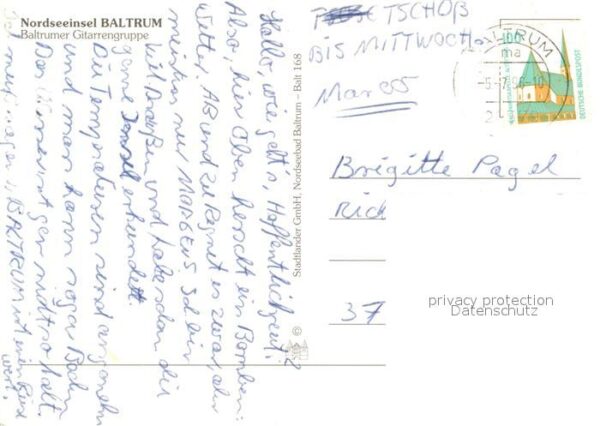 Nordseeinsel BALTRUM
Baltrumer Gitarrengruppe
Hallo, wie geht's, Hoffentlich gut!
Also, hier Oben herscht ein Bomben-
Wetter, AB und zu Regnet es zwar, aber
meistens nur MORGENS so bin
ich Draußen und habe schon die
ganze Insel erkundet.
Die Temperaturen sind angenehm
und man kann sogar Baden
Das Wasser ist gar nicht so kalt.
BALTRUM ist eine Reise
wert.
Stadtlander GmbH, Nordseebad Baltrum – Balt 168
©
TSCHÖß
BIS MITTWOCH
Marco
100
DEUTSCHE BUNDESPOST
Brigitte Pagel
Rick
37
privacy protection
Datenschutz